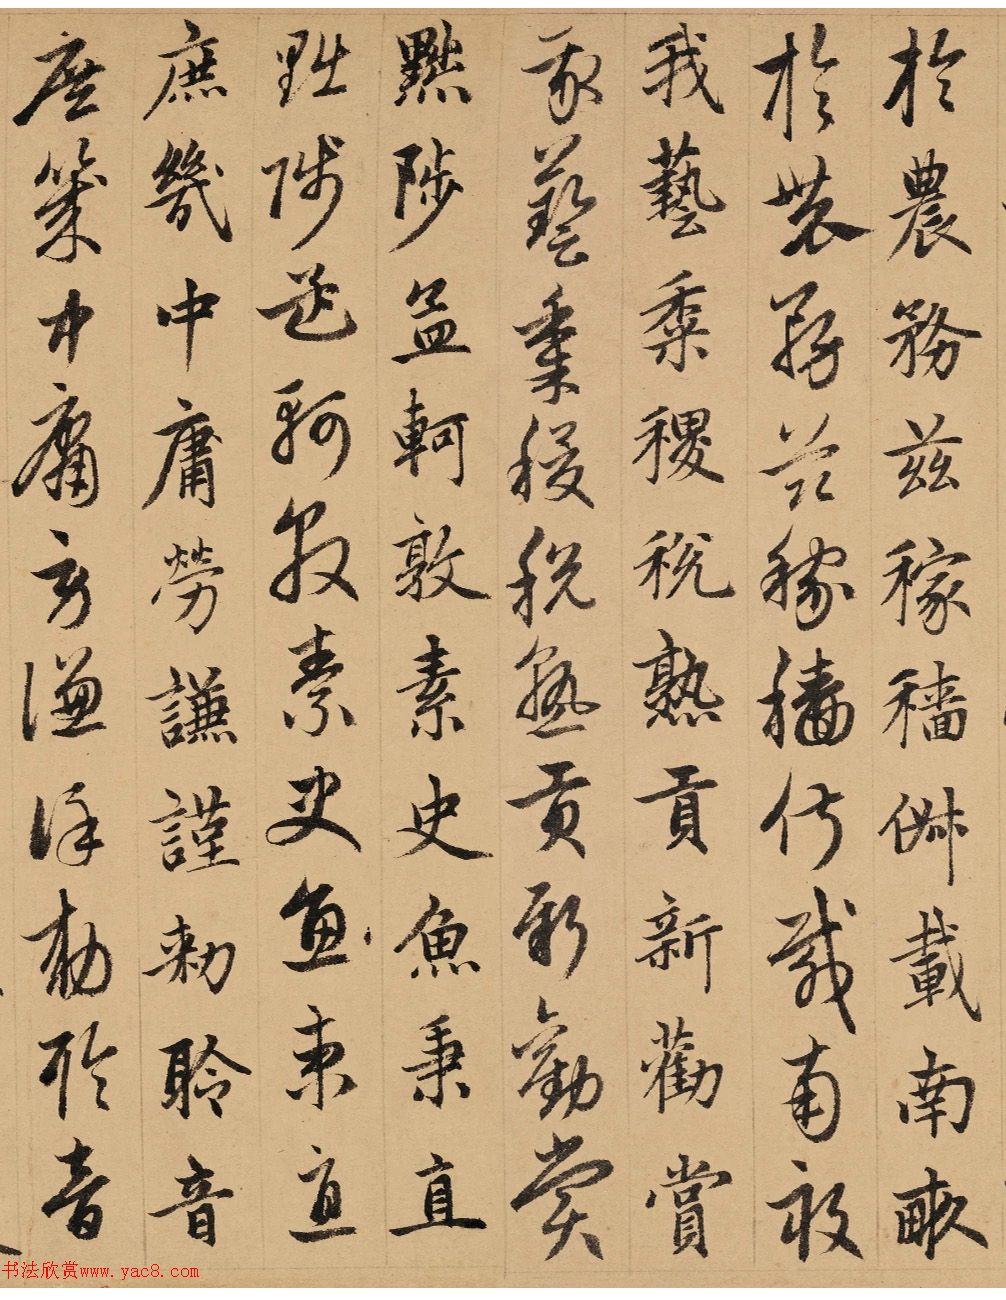 於農務茲稼穡俶載南畝
於農務茲稼穡俶載南畝
我藝黍稷稅熟貢新勸賞
我藝黍稷稅熟貢新勸賞
黜陟孟軻敦素史魚秉直
黜陟孟軻敦素史魚秉直
庶幾中庸勞謙謹勑聆音
庶幾中庸勞謙謹勑聆音
书法欣赏www.yac8.com